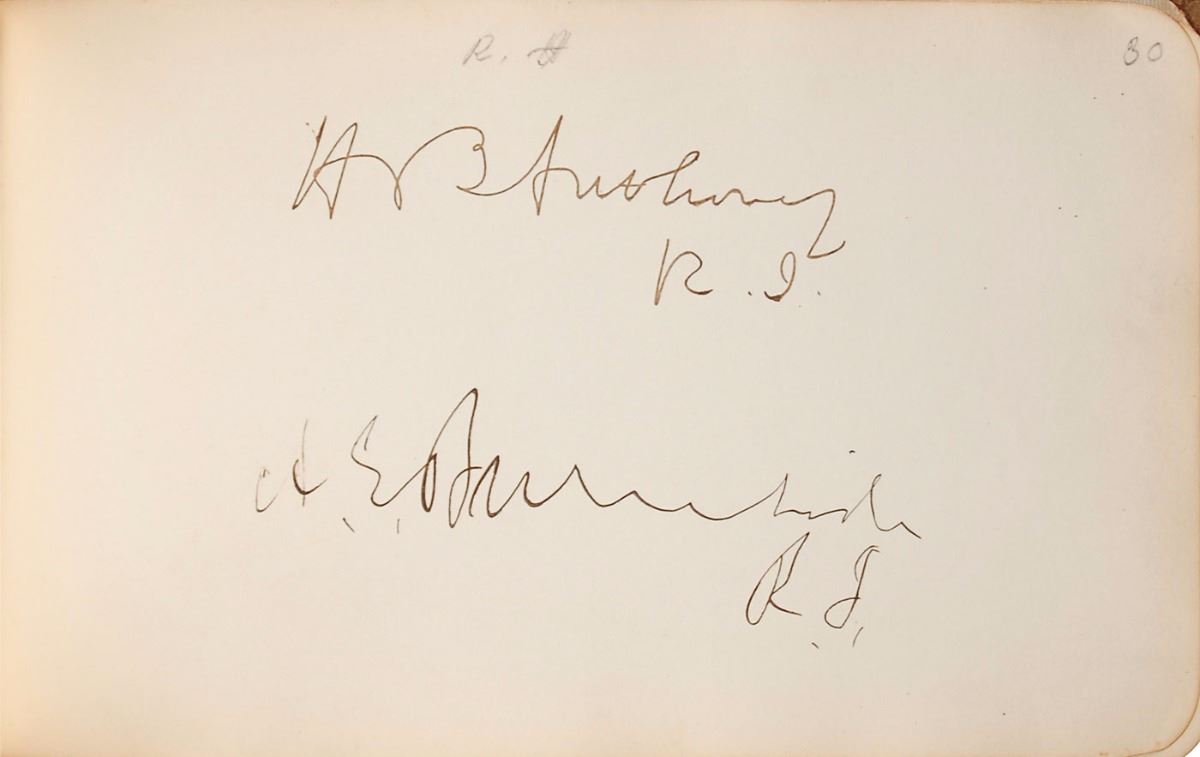 R. H 30
H B Anthony
R. I.
A. E. Burnside
R. I.